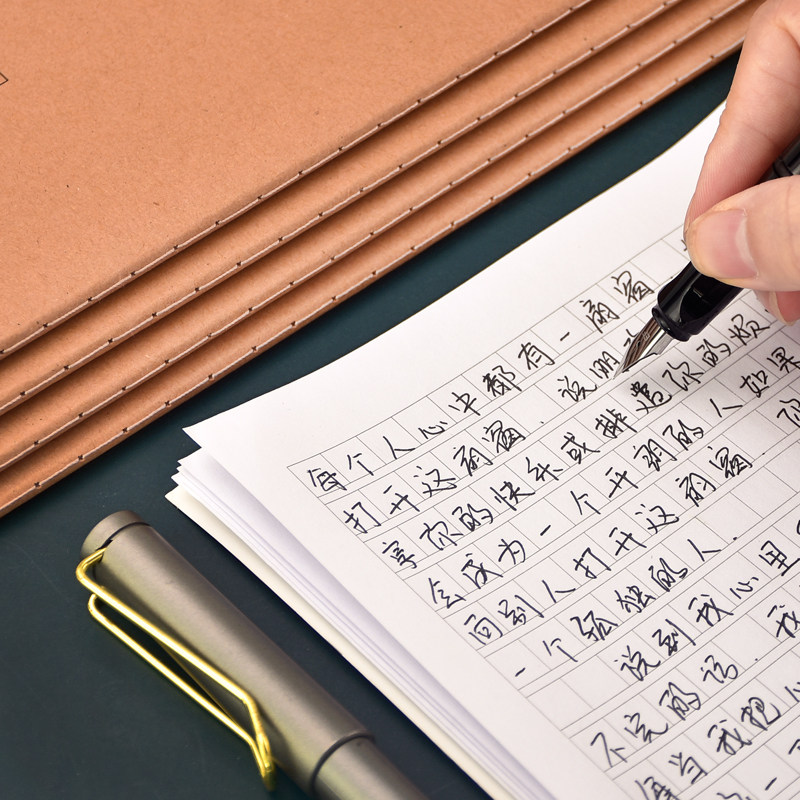 每个人心中都有一扇窗
打开这扇窗.说明
享你的快乐或排遣你的烦
会成为一个开朗的人如果
向别人打开这扇窗.你
一个孤独的人.
说到我心里
不完的话.我
每当我把心
一